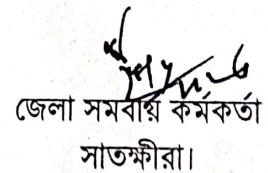 জেলা সমবায় কর্মকর্তা
সাতক্ষীরা।